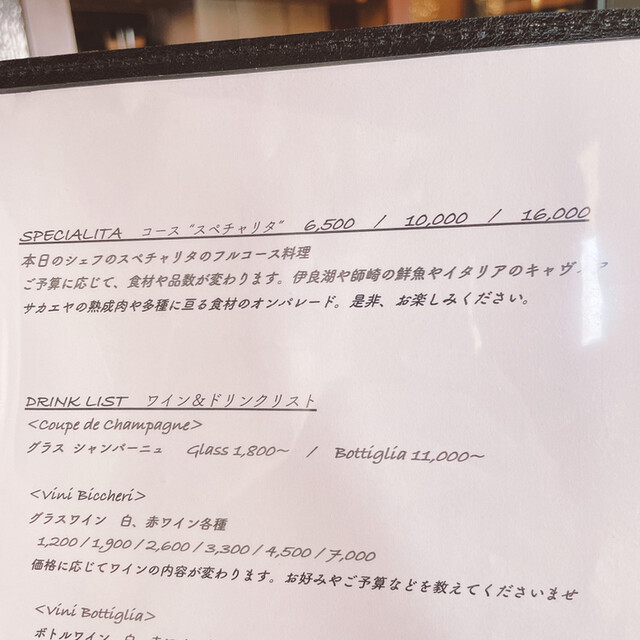 SPECIALITA コース "スペチャリタ" 6,500 / 10,000 / 16,000
本日のシェフのスペチャリタのフルコース料理
ご予算に応じて、食材や品数が変わります。伊良湖や師崎の鮮魚やイタリアのキャヴィア
サカエヤの熟成肉や多種に亘る食材のオンパレード。是非、お楽しみください。
DRINK LIST ワイン＆ドリンクリスト
<Coupe de Champagne>
グラス シャンパーニュ Glass 1,800〜 / Bottiglia 11,000〜
<Vini Biccheri>
グラスワイン 白、赤ワイン各種
1,200 / 1,900 / 2,600 / 3,300 / 4,500 / 7,000
価格に応じてワインの内容が変わります。お好みやご予算などを教えてくださいませ
<Vini Bottiglia>
ボトルワイン 白、赤